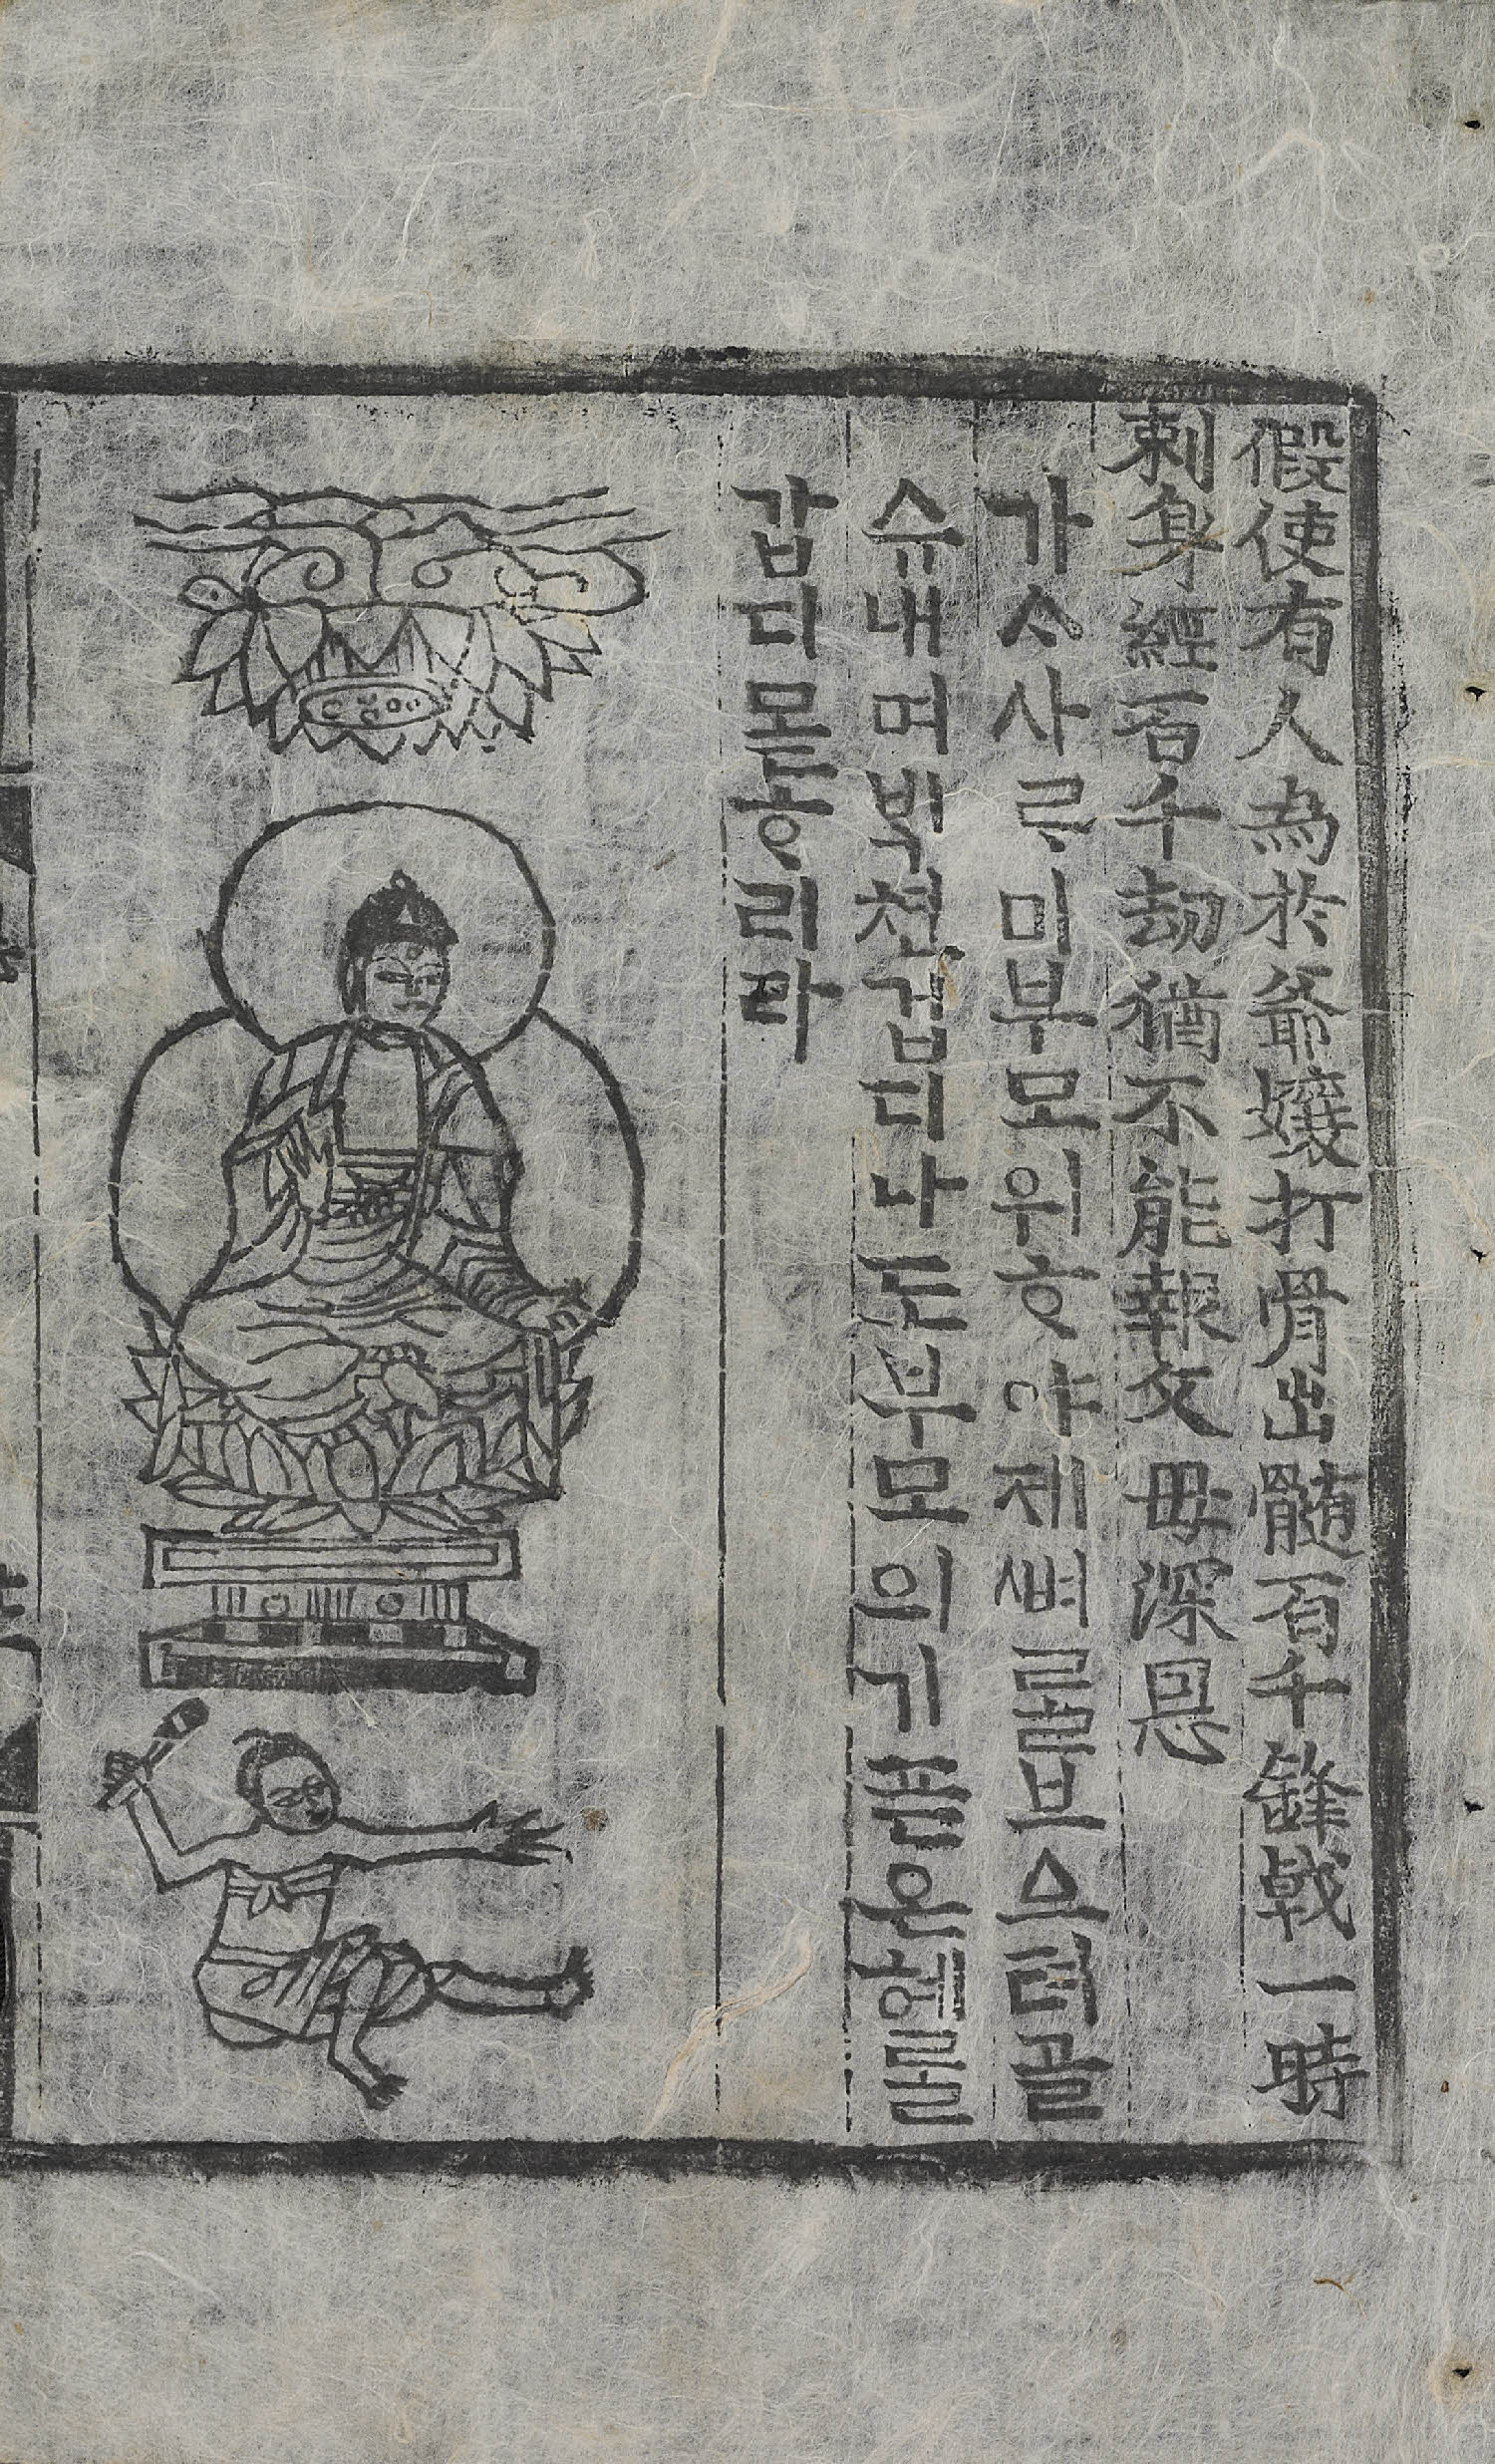 假使有人為於爺孃打骨出髓百千鋒戟一時
刺身經百千劫猶不能報父母深恩
가ᄉᆞ사ᄅᆞ미부모위ᄒᆞ야제ᄲᅧ를브ᅀᅳ텨골
슈내며ᄇᆡᆨ쳔겁디나도부모의기픈은혜를
갑디몯ᄒᆞ리라